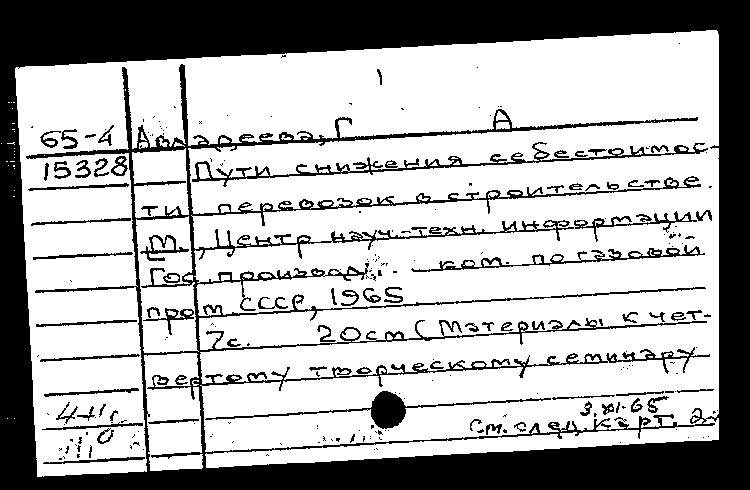 1
65-4 Авдадеева, Г А
15328 Пути снижения себестоимос-
ти перевозок в строительстве.
М., Центр науч.-техн. информации
Гос. производ. ком. по газовой
пром. СССР, 1965
7с. 20см (Материалы к чет-
вертому творческому семинару
3.XI-65
См. след. карт. 2